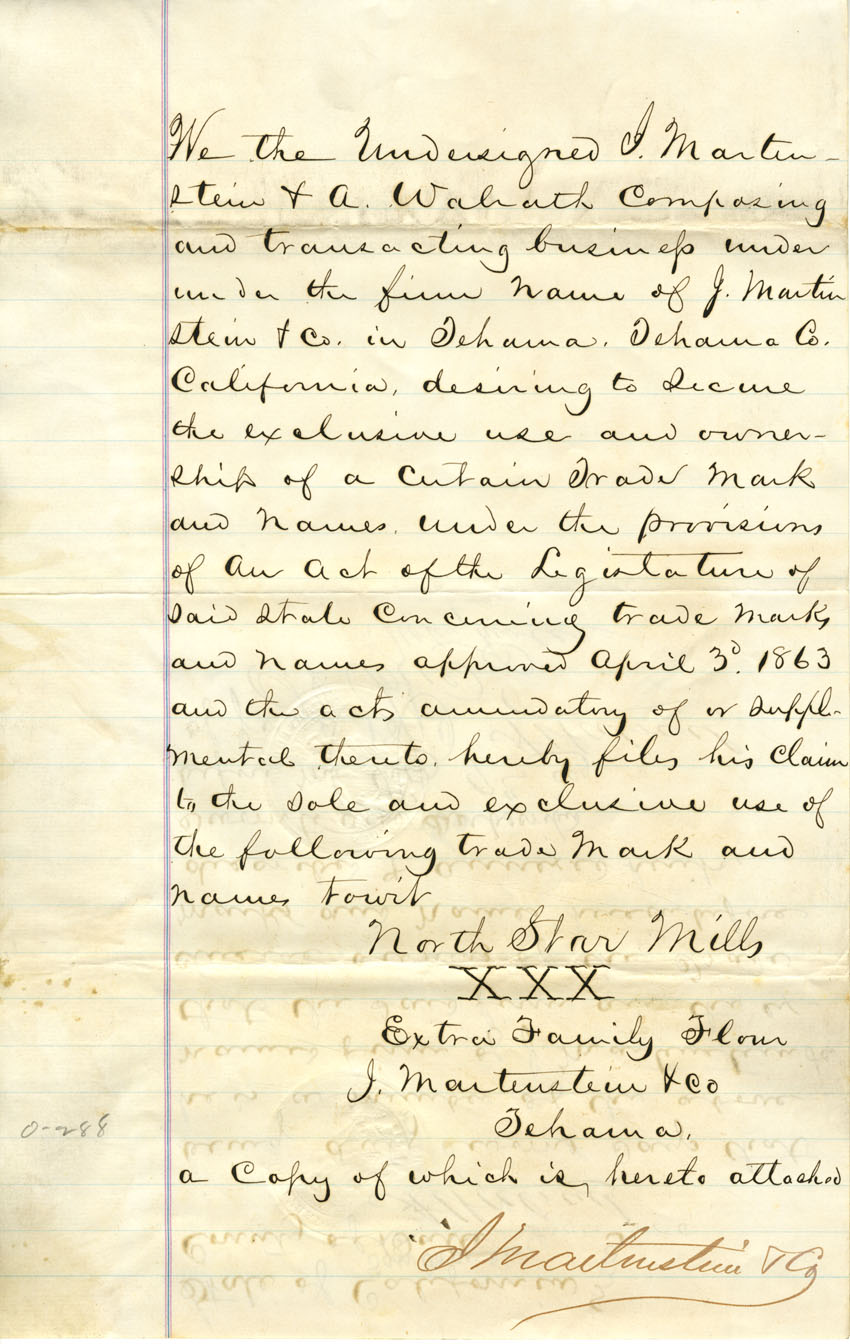 We the Undersigned J. Marten-
stein & A. Walrath Composing
and transacting business under
under the firm name of J. Martin
stein & Co. in Tehama, Tehama Co.
California, desiring to secure
the exclusive use and owner-
ship of a Certain Trade Mark
and Names, under the provisions
of An Act of the Legislature of
said State Concerning trade Marks
and Names approved April 3d. 1863
and the acts amendatory of or suppl-
mental thereto, hereby files his Claim
to the sole and exclusive use of
the following trade Mark and
names towit
North Star Mills
XXX
Extra Family Flour
J. Martenstein & Co
Tehama.
a Copy of which is, hereto attached
J Martenstein & Co
0-288